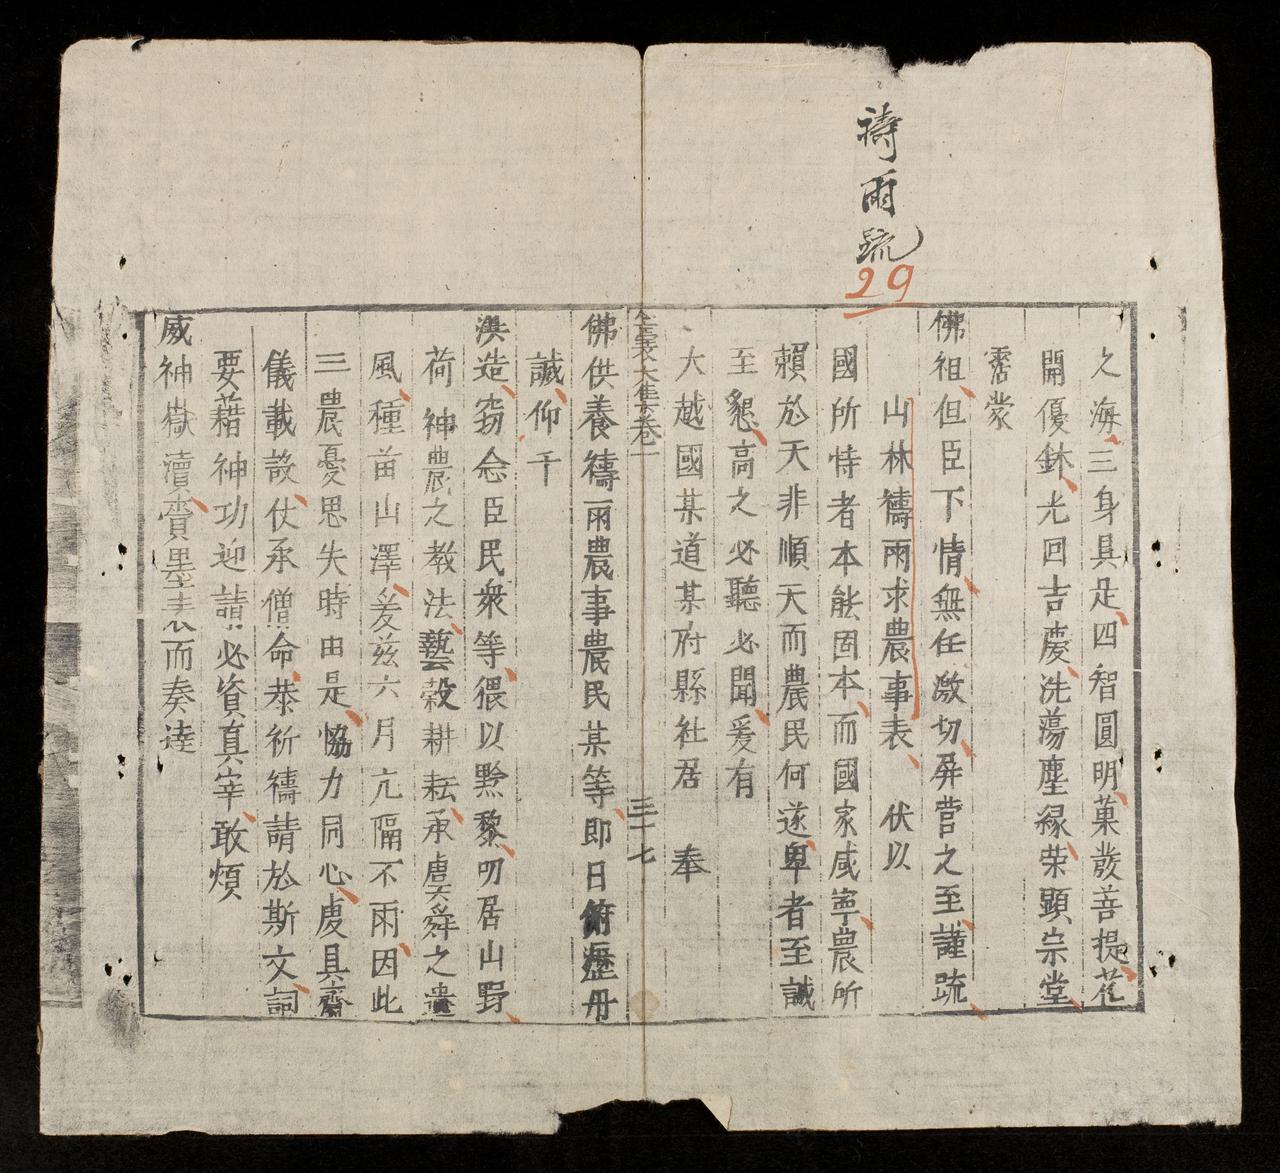 禱雨疏
29
之海三身具足四智圓明菓發菩提花
開優鉢光回吉慶洗蕩塵緣荣顯宗堂
霑蒙
佛祖但臣下情無任激切屏营之至謹疏
山林禱雨求農事表 伏以
國所恃者本能固本而國家咸寧農所
賴於天非順天而農民何遂卑者至誠
至懇高之必聽必聞爰有
大越國某道某府縣社居 奉
大集卷一 三十七
佛供養禱雨農事農民某等即日俯瀝丹
誠仰干
洪造窃念臣民衆等猥以黔黎叨居山野
荷神農之教法藝穀耕耘承虞舜之遺
風種苗山澤爰兹六月亢隔不雨因此
三農憂思失時由是恊力同心虔具齋
儀載設仗承僧命恭祈禱請於斯文詞
要藉神功迎請必資真宰敢煩
威神嶽瀆賫墨表而奏逹